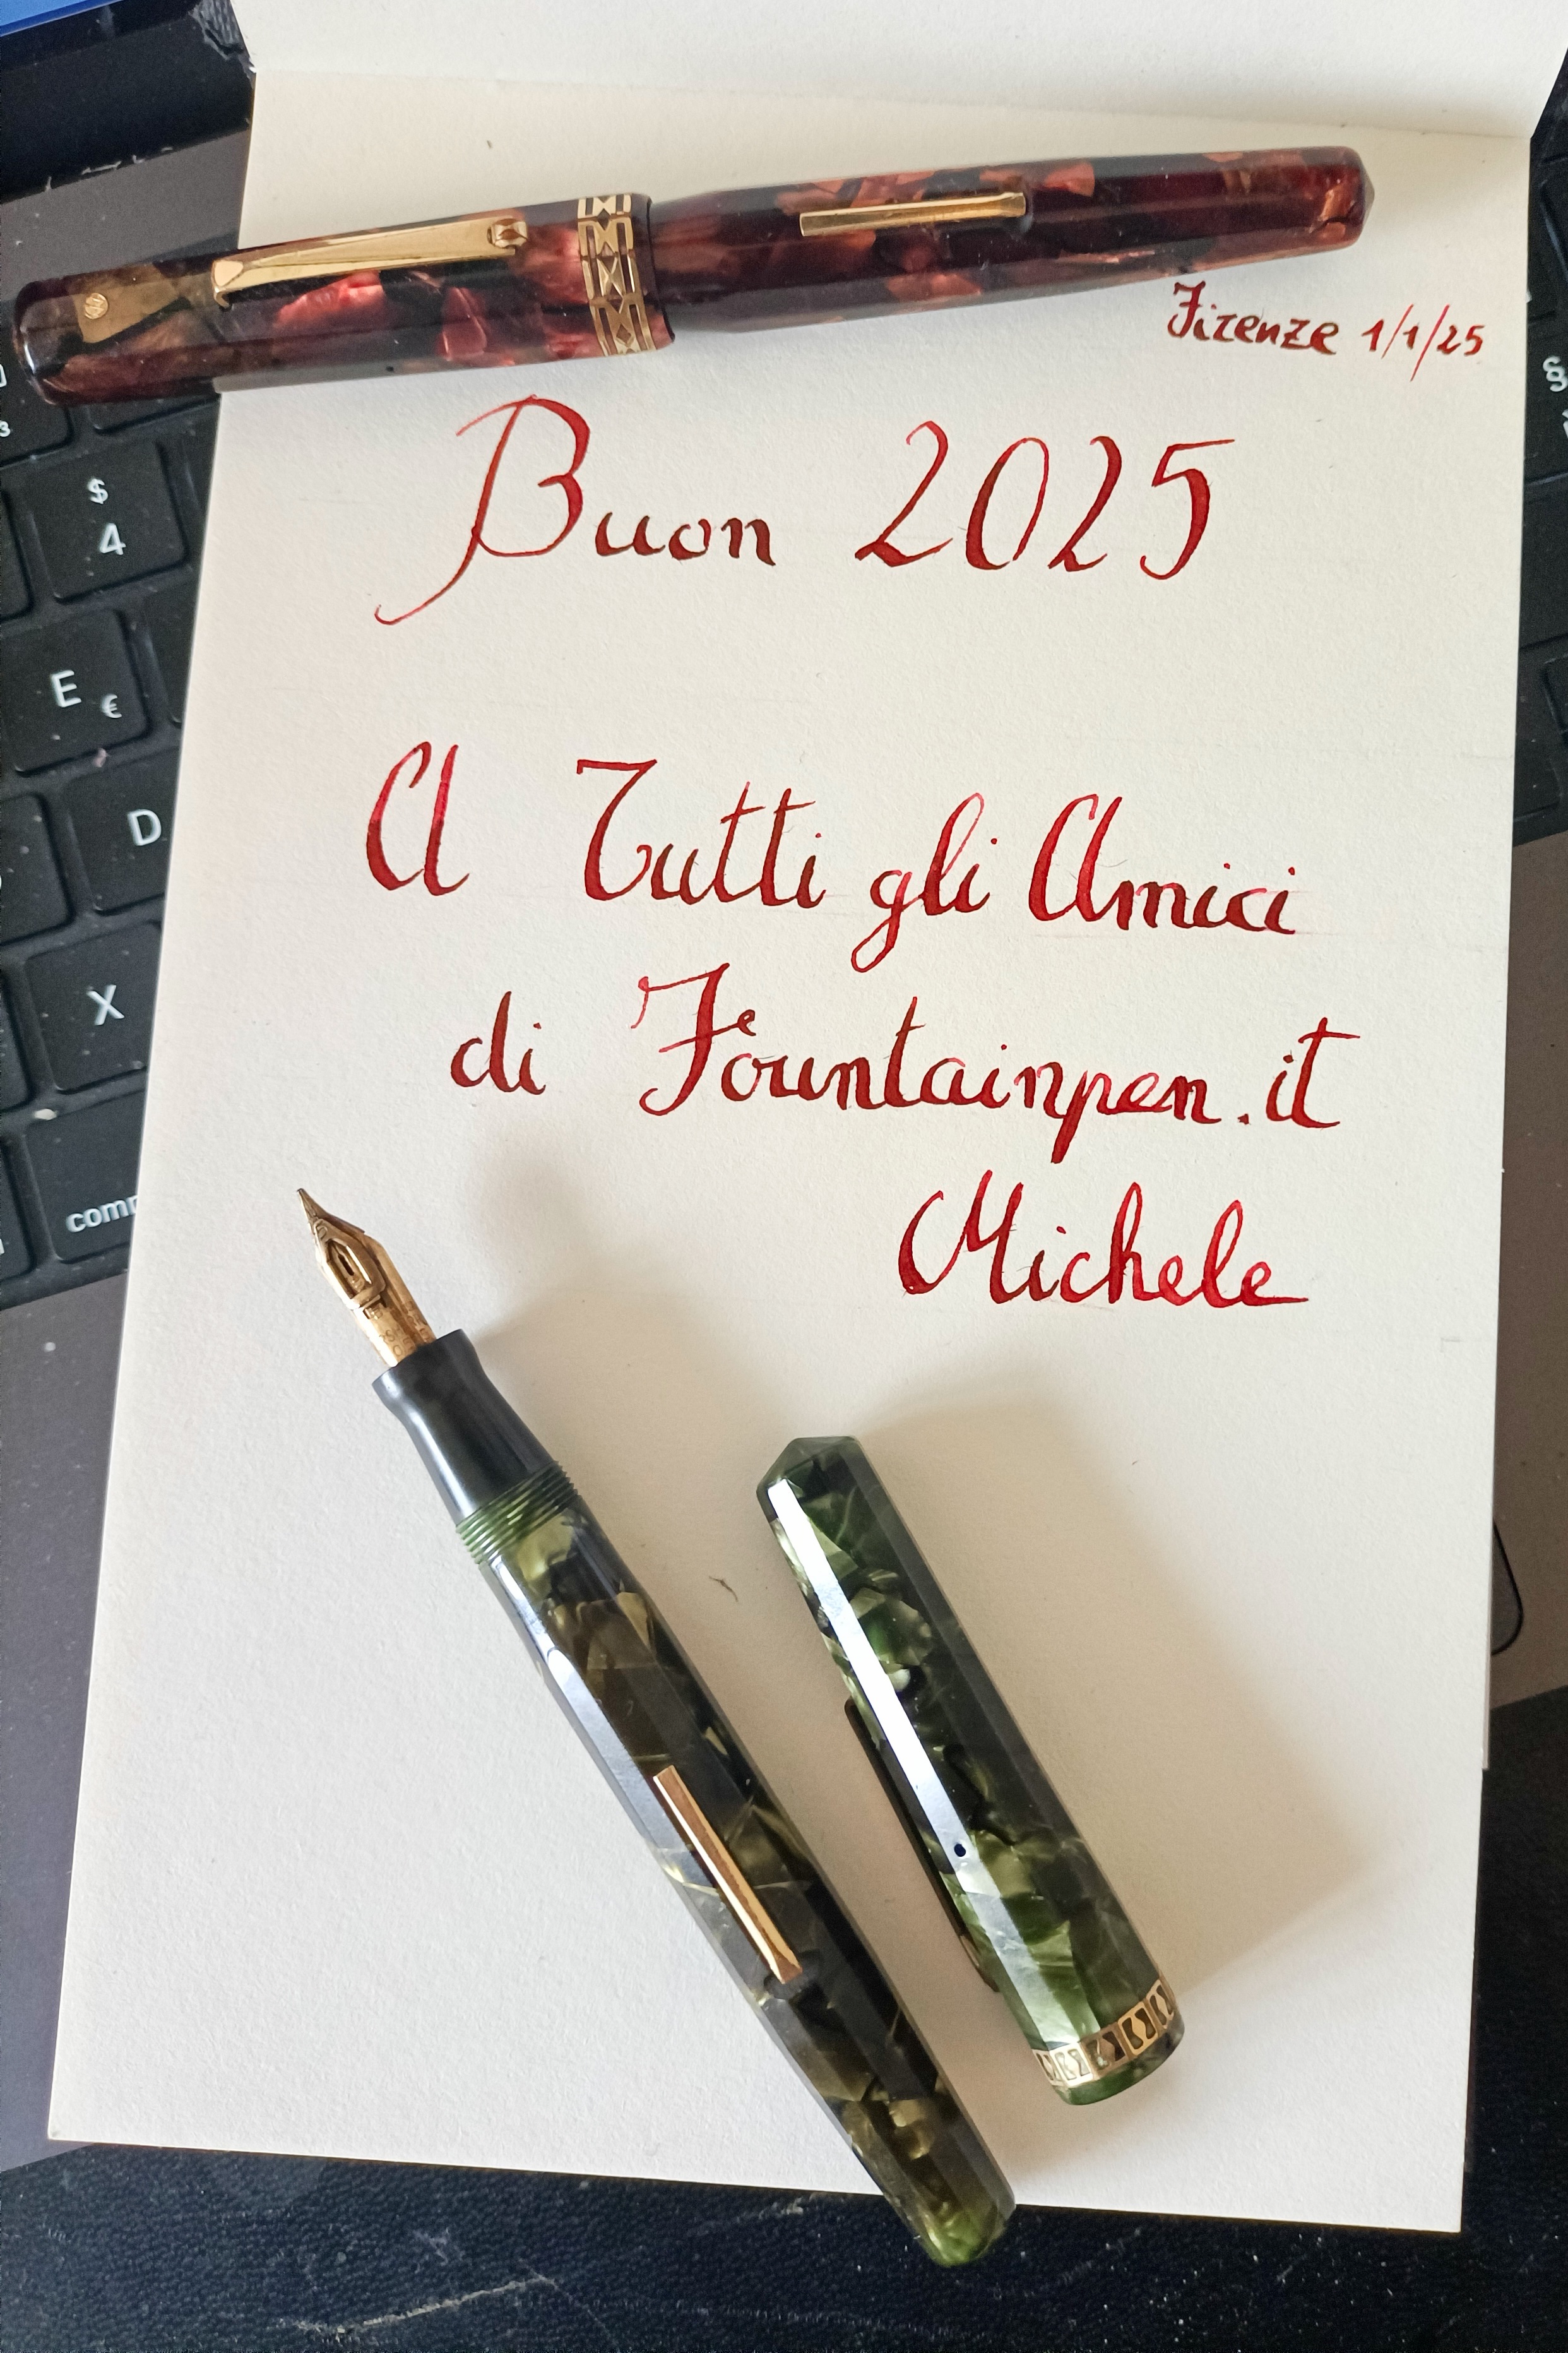 Firenze 1/1/25
Buon 2025
A Tutti gli Amici
di Fountainpen.it
Michele
$
4
E €
D
X
§